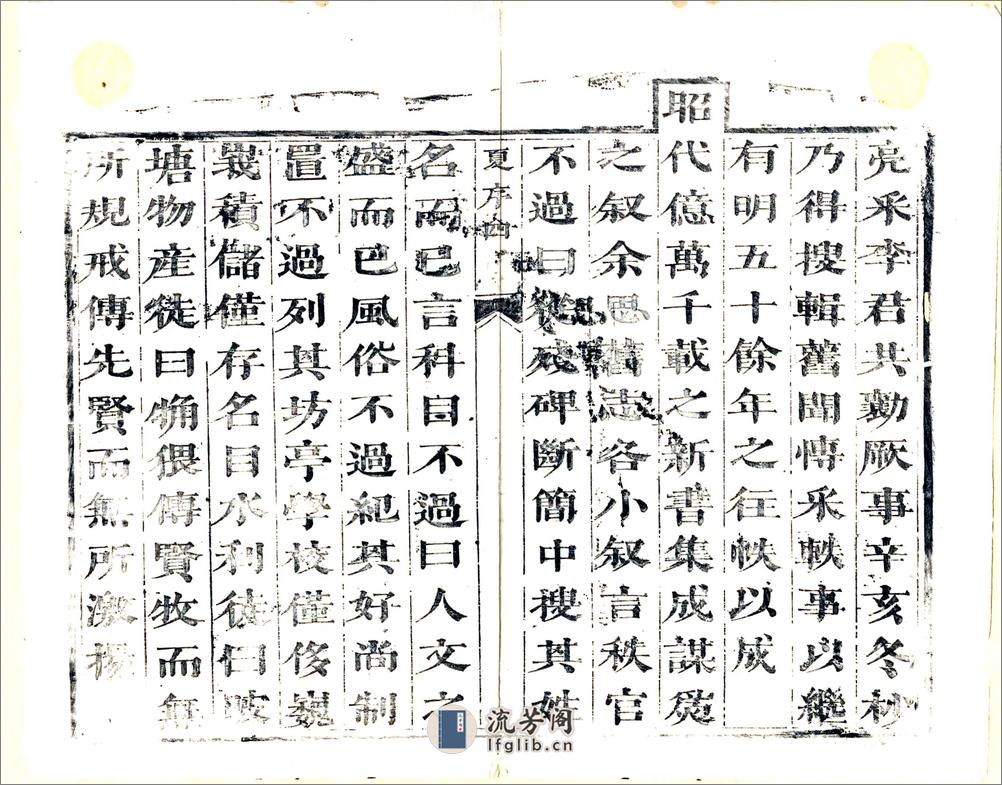 亮采李君共勷厥事辛亥冬杪
乃得搜輯舊聞慱采軼事以繼
有明五十餘年之往帙以成
昭代億萬千載之新書集成謀爲
之叙余思舊志各小叙言秩官
不過曰從殘碑斷簡中搜其姓
夏序四
名而已言科目不過曰人文之
盛而已風俗不過紀其好尚制
置不過列其坊亭學校僅侈巍
峩積儲僅存名目水利徒曰陂
塘物產徒曰猥傳賢牧而無
所規戒傳先賢而無所激揚
流芳阁
lfglib.cn